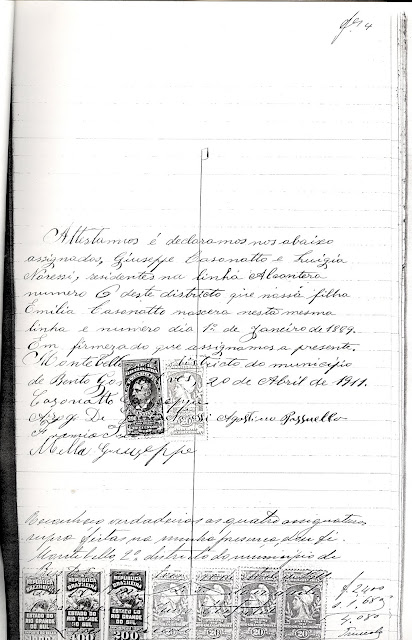 fls 4
Attestamos é declaramos nos abaixo
assignados, Giuseppe Casonatto e Luigia
Noressi, residentes na linha Alcantera
numero 6 deste districto que nossa filha
Emilia Casonatto nascera nesta mesma
linha e numero dia 1º de Janeiro de 1889.
Em firmeza do que assignamos a presente.
Montebello districto do municipio
de Bento Gon 20 de Abril de 1911.
Casonatto
Arog. Di Noressi Agostino Passuello
Mella Giuseppe
Reconheço verdadeiras as quatro assignaturas
supra feitas na minha presença dou fé.
Montebello, 2º districto do municipio de
REPUBLICA BRASILEIRA REPUBLICA BRASILEIRA REPUBLICA BRASILEIRA
ESTADO DO RIO GRANDE DO SUL ESTADO DO RIO GRANDE DO SUL ESTADO DO RIO GRANDE DO SUL
200
$ 2400
4,080